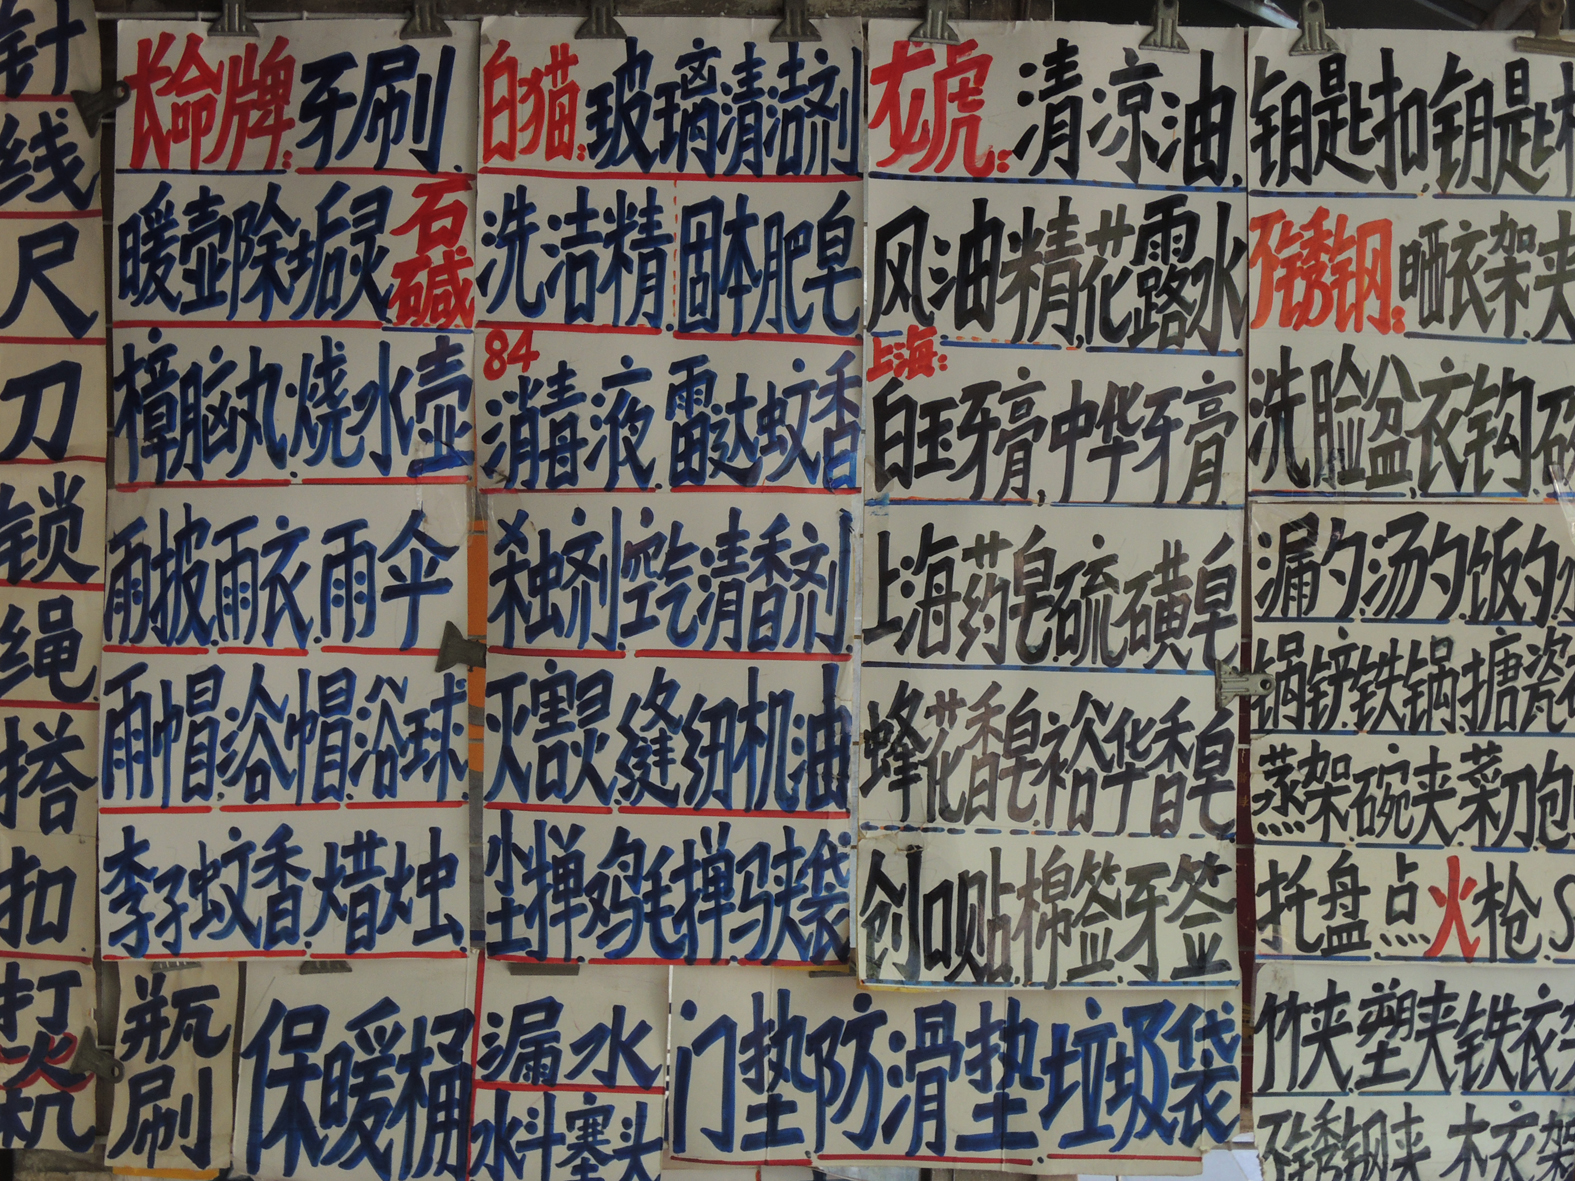 针
线
尺
刀
锁
绳
搭
扣
打
火
机
长命牌:牙刷.
暖壶除垢灵石碱
樟脑丸.烧水壶
雨披.雨衣.雨伞
雨帽.浴帽.浴球
李子蚊香.蜡烛.
瓶
刷
保暖桶
白猫:玻璃清洁剂
洗洁精.固本肥皂
84
消毒液.雷达蚊香
杀虫剂.空气清香剂
灭害灵.缝纫机油
尘掸.鸡毛掸.马夹袋
漏水
水斗塞头
门垫.防滑垫.垃圾袋
龙虎:清凉油,
风油精,花露水
上海:
白玉牙膏,中华牙膏
上海药皂.硫磺皂
蜂花香皂.裕华香皂
创口贴.棉签.牙签
钥匙扣.钥匙
不锈钢:晒衣架.夹
洗脸盆,衣钩.
漏勺.汤勺.饭勺.
锅铲.铁锅.搪瓷
蒸架.碗夹.菜刀.
托盘.点火枪.S
竹夹.塑夹.铁衣
不锈钢夹.木衣架